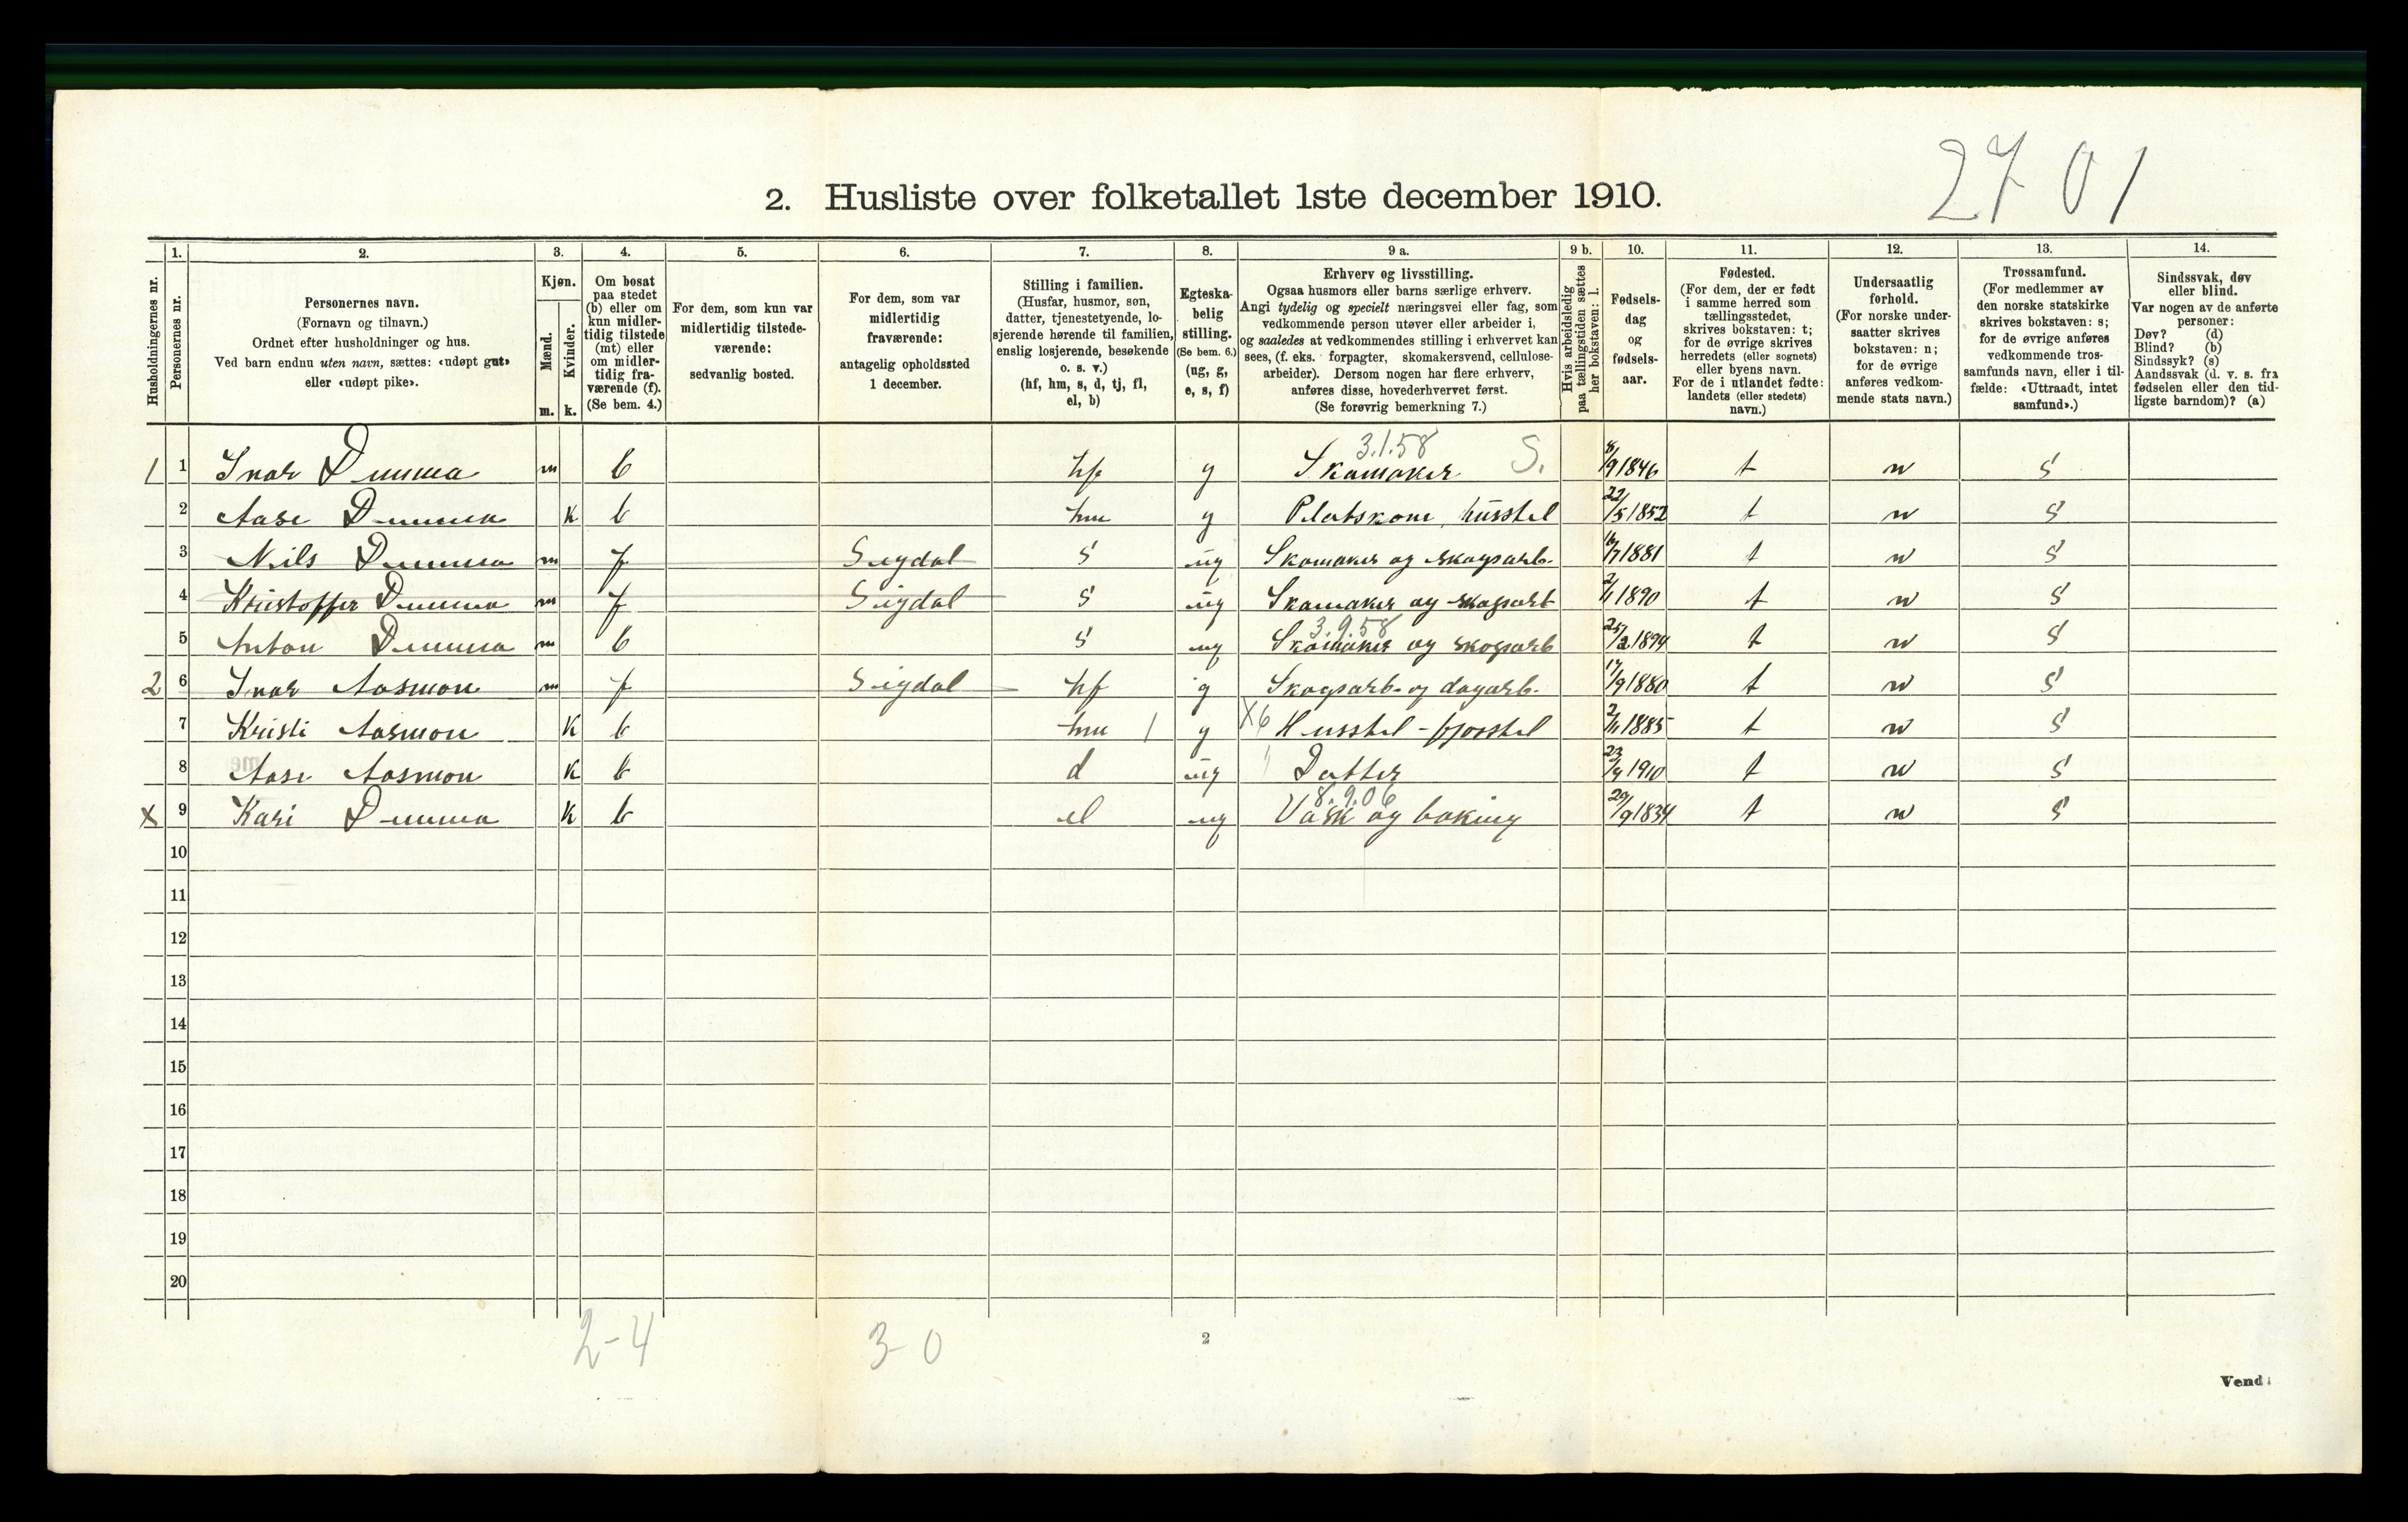 27 01
2. Husliste over folketallet 1ste december 1910.
1. 2. 3. 4. 5. 6. 7. 8. 9 a. 9 b. 10. 11. 12. 13. 14.
Husholdningernes nr.
Personernes nr.
Personernes navn.
(Fornavn og tilnavn.)
Ordnet efter husholdninger og hus.
Ved barn endnu uten navn, sættes: «udøpt gut»
eller «udøpt pike».
Kjøn.
Mænd.
Kvinder.
m. k.
Om bosat
paa stedet
(b) eller om
kun midler-
tidig tilstede
(mt) eller
om midler-
tidig fra-
værende (f).
(Se bem. 4.)
For dem, som kun var
midlertidig tilstede-
værende:
sedvanlig bosted.
For dem, som var
midlertidig
fraværende:
antagelig opholdssted
1 december.
Stilling i familien.
(Husfar, husmor, søn,
datter, tjenestetyende, lo-
sjerende hørende til familien,
enslig losjerende, besøkende
o. s. v.)
(hf, hm, s, d, tj, fl,
el, b)
Egteska-
belig
stilling.
(Se bem. 6.)
(ug, g,
e, s, f)
Erhverv og livsstilling.
Ogsaa husmors eller barns særlige erhverv.
Angi tydelig og specielt næringsvei eller fag, som
vedkommende person utøver eller arbeider i,
og saaledes at vedkommendes stilling i erhvervet kan
sees, (f. eks. forpagter, skomakersvend, cellulose-
arbeider). Dersom nogen har flere erhverv,
anføres disse, hovederhvervet først.
(Se forøvrig bemerkning 7.)
Hvis arbeidsledig
paa tællingstiden sættes
her bokstaven: l.
Fødsels-
dag
og
fødsels-
aar.
Fødested.
(For dem, der er født
i samme herred som
tællingsstedet,
skrives bokstaven: t;
for de øvrige skrives
herredets (eller sognets)
eller byens navn.
For de i utlandet fødte:
landets (eller stedets)
navn.)
Undersaatlig
forhold.
(For norske under-
saatter skrives
bokstaven: n;
for de øvrige
anføres vedkom-
mende stats navn.)
Trossamfund.
(For medlemmer av
den norske statskirke
skrives bokstaven: s;
for de øvrige anføres
vedkommende tros-
samfunds navn, eller i til-
fælde: «Uttraadt, intet
samfund».)
Sindssvak, døv
eller blind.
Var nogen av de anførte
personer:
Døv? (d)
Blind? (b)
Sindssyk? (s)
Aandssvak (d. v. s. fra
fødselen eller den tid-
ligste barndom)? (a)
3.1.58
1 1 Ivar Dumma m b hf g Skomaker S. 8/9 1846 t n s
2 Aase Dumma k b hm g Platskone, husstel 22/5 1852 t n s
3 Nils Dumma m f Sigdal s ug Skomaker og skogsarb. 16/7 1881 t n s
4 Kristoffer Dumma m f Sigdal s ug Skomaker og skogsarb 2/1 1890 t n s
3.9.58
5 Anton Dumma m b s ug Skomaker og skogsarb 25/2 1894 t n s
2 6 Ivar Aasmon m f Sigdal hf g Skogsarb. og dagarb. 17/9 1880 t n s
7 Kristi Aasmon k b hm / g X6 Husstel - fjosstel 2/11 1885 t n s
8 Aase Aasmon k b d ug Datter 23/4 1910 t n s
8.9.06
x 9 Kari Dumma k b el ug Vask og baking 29/9 1834 t n s
10
11
12
13
14
15
16
17
18
19
20
2-4 3-0
2
Vend!